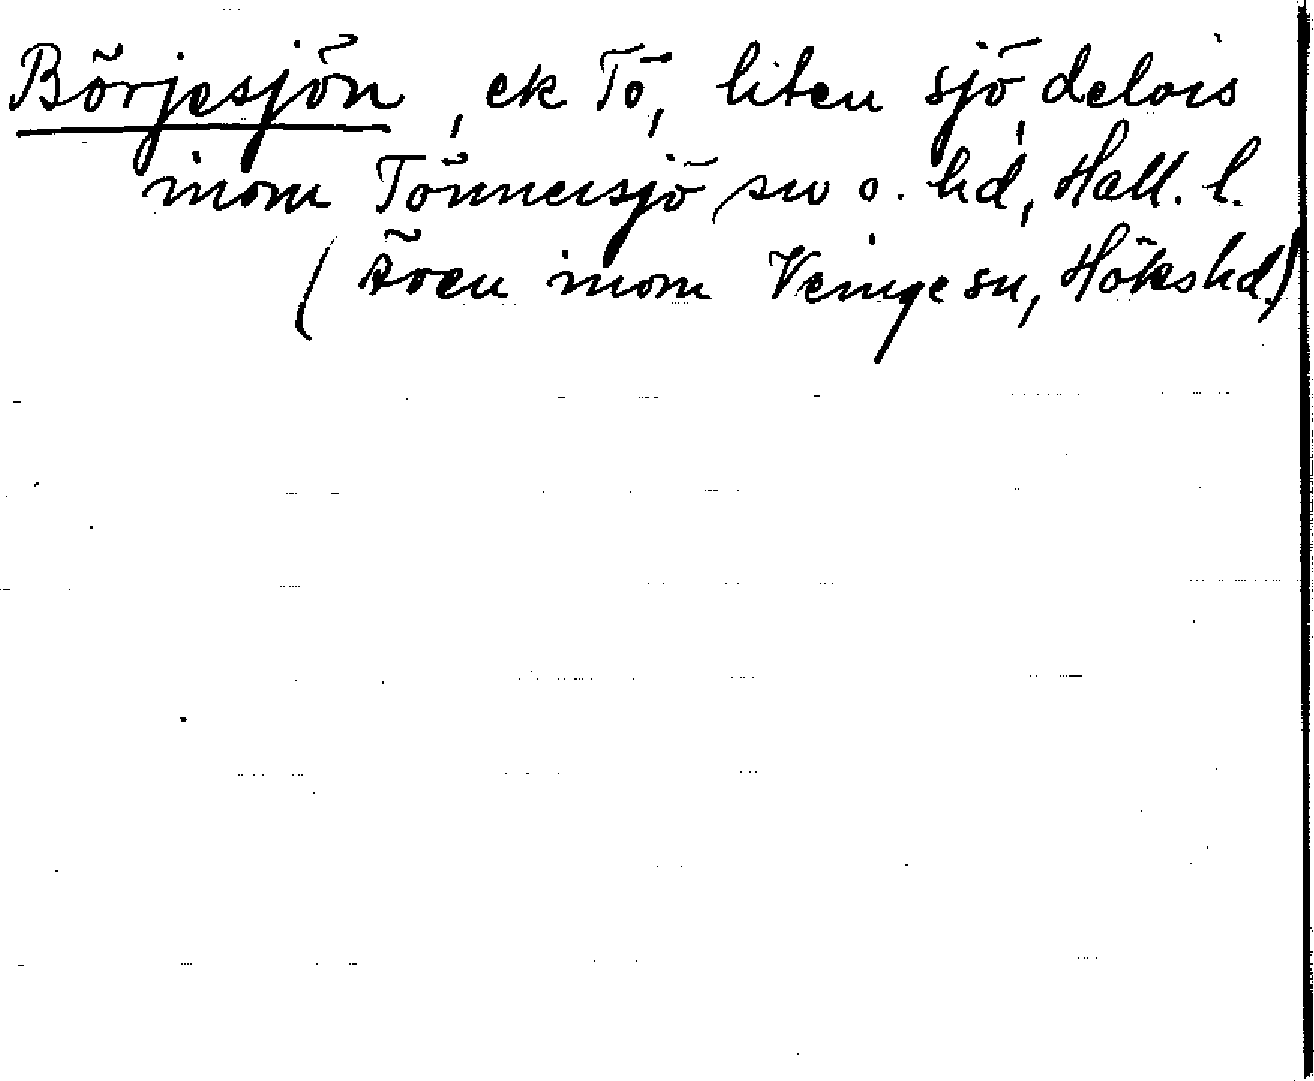 Börjesjön, ek Tö, liten sjö, delvis
inom Tönnersjö sn o. hd, Hall. l.
(Även inom Veinge sn, Höks hd.)